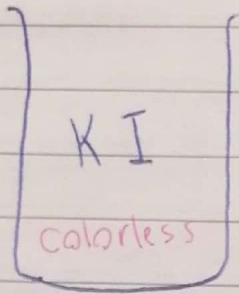 KI
colorless